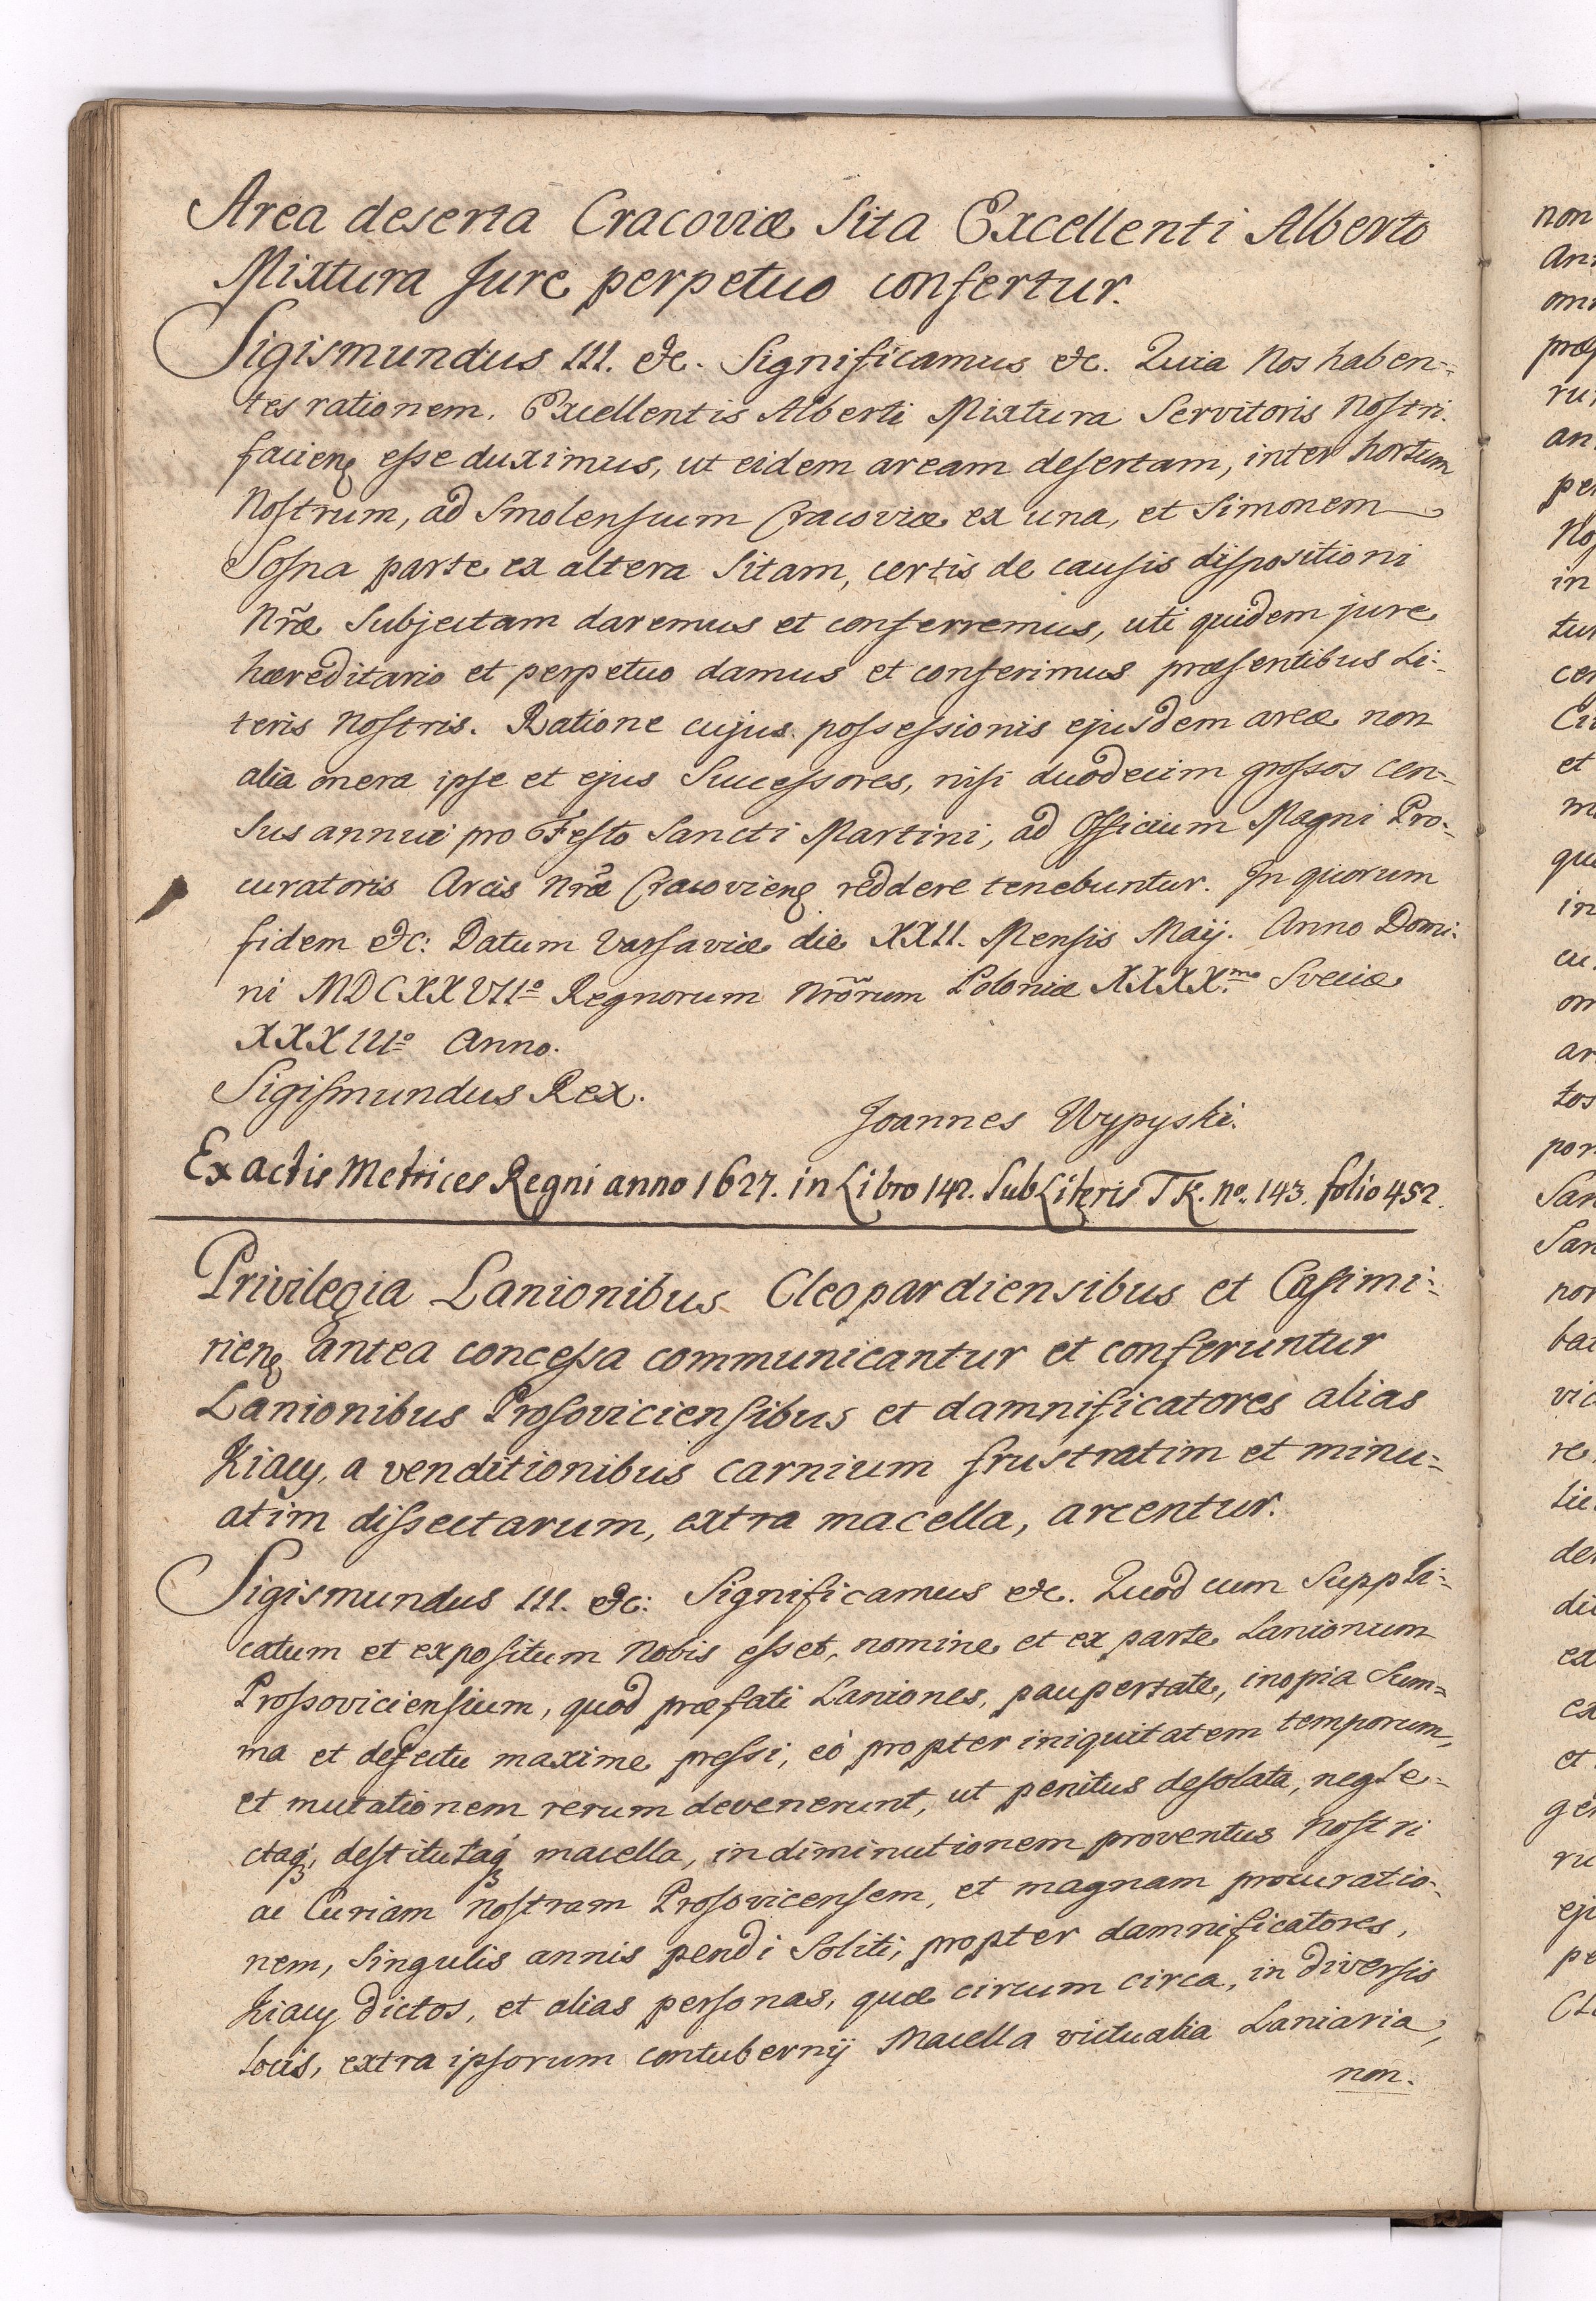 Area deserta Cracoviæ Sita Excellenti Alberto
Mixtura Jure perpetuo confertur.
Sigismundus III. etc. Significamus etc. Quia Nos haben-
tes rationem. Excellentis Alberti Mixtura Servitoris Nostri.
facienꝭ esse duximus, ut eidem aream desertam, inter hortum
Nostrum, ad Smolenscium Cracoviæ ex una, et Simonem
Sosna parte ex altera Sitam, certis de causis dispositioni
Nr̃æ Subjectam daremus et conferremus, uti quidem jure
hæreditario et perpetuo damus et conferimus præsentibus Li-
teris Nostris. Ratione cujus possessionis ejusdem areæ non
alia onera ipse et ejus Successores, nisi duodecim grossos cen-
sus annui pro Festo Sancti Martini, ad Officium Magni Pro-
curatoris Arcis Nr̃æ Cracovienꝭ reddere tenebuntur. In quorum
fidem etc: Datum Varsaviæ die XXII. Mensis Maij. Anno Domi-
ni MDCXXVIIº Regnorum Nrõrum Poloniæ XXXX.mo Sveciæ
XXXIIIIº Anno.
Sigismundus Rex.
Joannes Wypyski.
Ex actis Metrices Regni anno 1627. in Libro 142. Sub Literis TK. no. 143. folio 452.
Privilegia Lanionibus Cleopardiensibus et Casimi-
rienꝭ antea concessa communicantur et conferuntur
Lanionibus Prosoviciensibus et damnificatores alias
Kiacy, a venditionibus carnium frustratim et minu-
atim dissectarum, extra macella, arcentur.
Sigismundus III. etc: Significamus etc. Quod cum Suppli-
catum et expositum Nobis esset, nomine et ex parte Lanionum
Prossoviciensium, quod præfati Laniones, paupertate, inopia Sum-
ma et defectu maxime pressi, eò propter iniquitatem temporum,
et mutationem rerum devenerunt, ut penitus desolata, negle-
ctaq́ꝫ, destitutaq́ꝫ macella, in diminutionem proventus Nostri
ac Curiam Nostram Prosovicensem, et magnam procuratio-
nem, Singulis annis pendi Soliti, propter damnificatores,
Kiacy dictos, et alias personas, quæ circum circa, in diversis
locis, extra ipsorum contubernij Macella victualia Laniaria,
non.